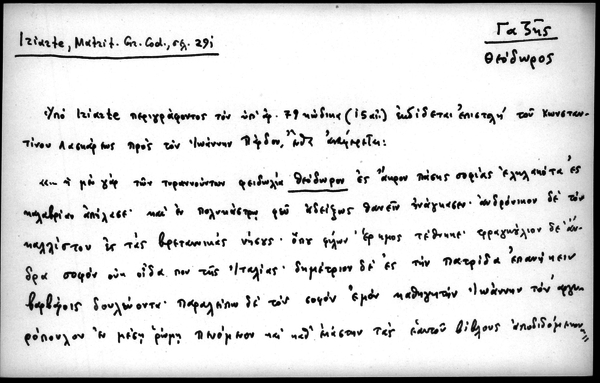 Iriarte, Matrit. Gr. Cod., σελ. 291
Γαζῆς
Θεόδωρος
Ὑπὸ Iriarte περιγράφοντος τὸν ὑπ' ἀρ. 79 κώδικα (15 αἰ.) ἐκδίδεται ἐπιστολὴ τοῦ Κωνσταν-
τίνου Λασκάρεως πρὸς τὸν Ἰωάννην Πάρδον, ἔνθα ἀναφέρεται:
ἡ μὲν γὰρ τῶν τυραννούντων φειδωλία Θεόδωρον ἐς ἄκρον πάσης σοφίας ἐληλακότα ἐς
καλαβρίαν ἀπήλασε· καὶ ἐν πολυκάστρῳ φεῦ ἀδείξως θανεῖν ἠνάγκασεν· ἀνδρόνικον δὲ τὸν
καλλίστου ἐς τὰς βρεταννικὰς νήσους· ὅπου φίλων ἔρημος τέθνηκε· φραγκύλιον δὲ ἄν-
δρα σοφὸν οὐκ οἶδα που τῆς Ἰταλίας· δημήτριον δὲ ἐς τὴν Πατρίδα ἐπανήκειν
βαρβάροις δουλώοντα· Παραλείπω δὲ τὸν σοφὸν ἐμὸν καθηγητὴν Ἰωάννην τὸν ἀργυ-
ρόπουλον ἐν μέσῃ ῥώμῃ πενόμενον καὶ καθ' ἑκάστην τὰς ἑαυτοῦ βίβλους ἀποδιδόμενον"